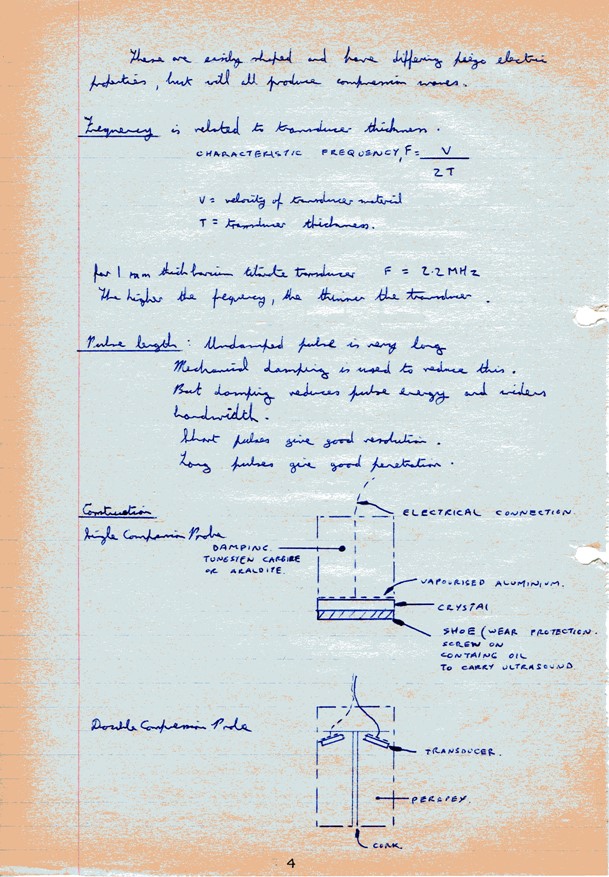 These are easily shaped and have differing piezo electric
properties, but will all produce compression waves.
Frequency is related to transducer thickness.
CHARACTERISTIC FREQUENCY, F = V
2T
V = velocity of transducer material
T = transducer thickness.
for 1 mm thick barium titinate transducer F = 2.2 MHz
The higher the fequency, the thinner the transducer.
Pulse length: Undamped pulse is very long
Mechanical damping is used to reduce this.
But damping reduces pulse energy and widens
bandwidth.
Short pulses give good resolution.
Long pulses give good penetration.
Construction
ELECTRICAL CONNECTION.
Single Compression Probe
DAMPING.
TUNGSTEN CARBIRE
OR ARALDITE.
VAPOURISED ALUMINIUM.
CRYSTAL
SHOE (WEAR PROTECTION.
SCREW ON
CONTAING OIL
TO CARRY ULTRASOUND.
Double Compression Probe
TRANSDUCER.
PERSPEX.
CORK.
4